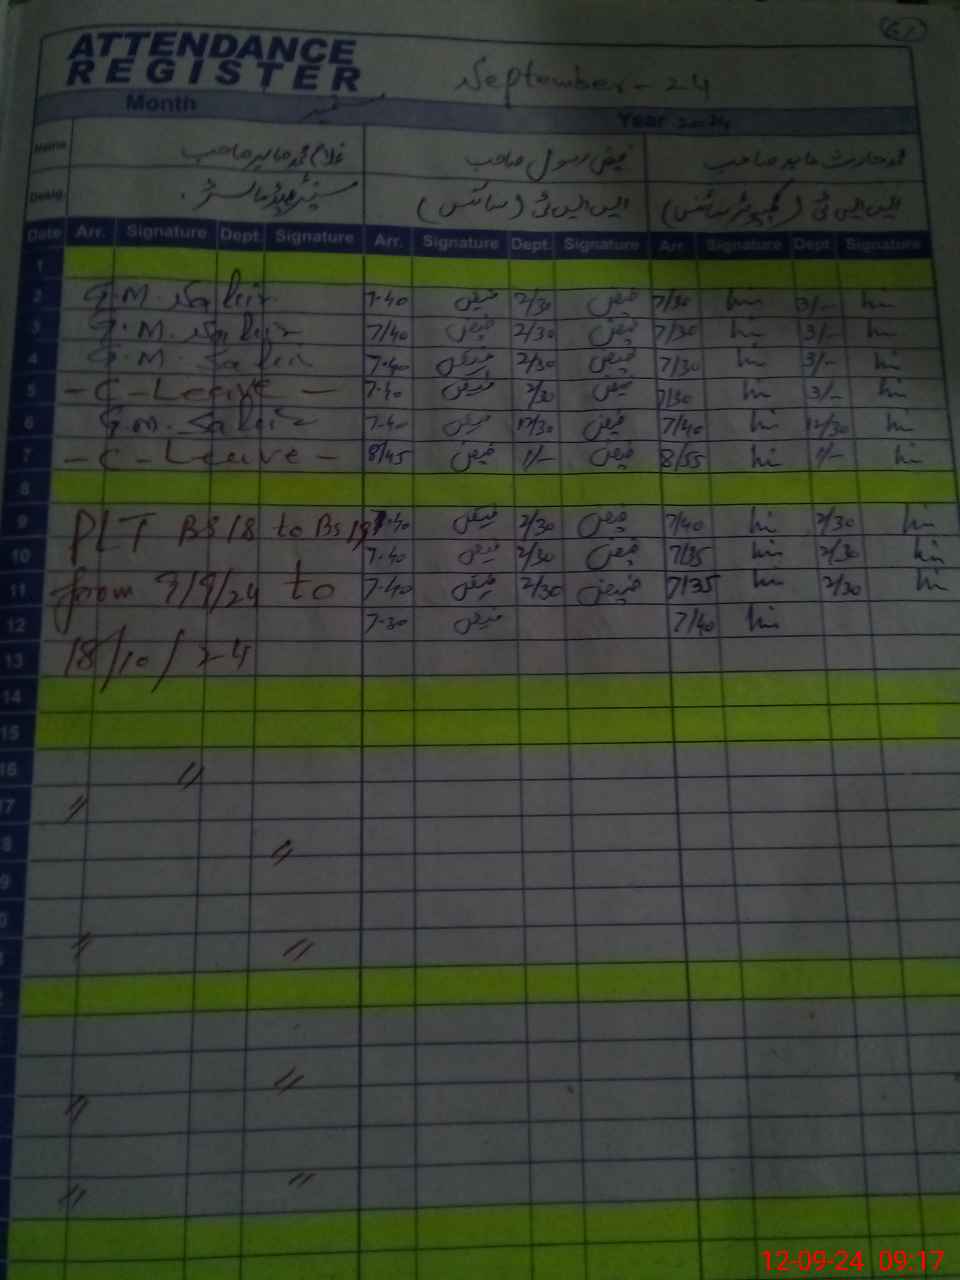 ATTENDANCE
REGISTER
September - 24
Month ستمبر Year 2024
Name غلام محمد صابر صاحب فیض رسول صاحب محمد حارث صابر صاحب
Desig سینئر ہیڈ ماسٹر ایس ایس ٹی (سائنس) ایس ایس ٹی (کمپیوٹر سائنس)
Date Arr. Signature Dept. Signature Arr. Signature Dept. Signature Arr. Signature Dept Signature
1
2 G.M. 7-40 فیض 2/30 فیض 7/30 3/-
3 G.M. 7/40 فیض 2/30 فیض 7/30 3/-
4 G.M. 7-40 فیض 2/30 فیض 7/30 3/-
5 - C - Leave - 7-40 فیض 2/30 فیض 7/30 3/-
6 G.M. 7-40 فیض 12/30 فیض 7/40 12/30
7 - C - Leave - 8/45 فیض 1/- فیض 8/55 1/-
8
9 PLT BS 18 to BS 19 7-40 فیض 2/30 فیض 7/40 2/30
10 7-40 فیض 2/30 فیض 7/35 2/30
11 from 9/9/24 to 7-40 فیض 2/30 فیض 7/35 2/30
12 7-30 فیض 7/40
13 18/10/24
14
15
16 〃
17 〃
8 〃
9
0
〃 〃
〃
〃
〃
〃
12-09-24 09:17